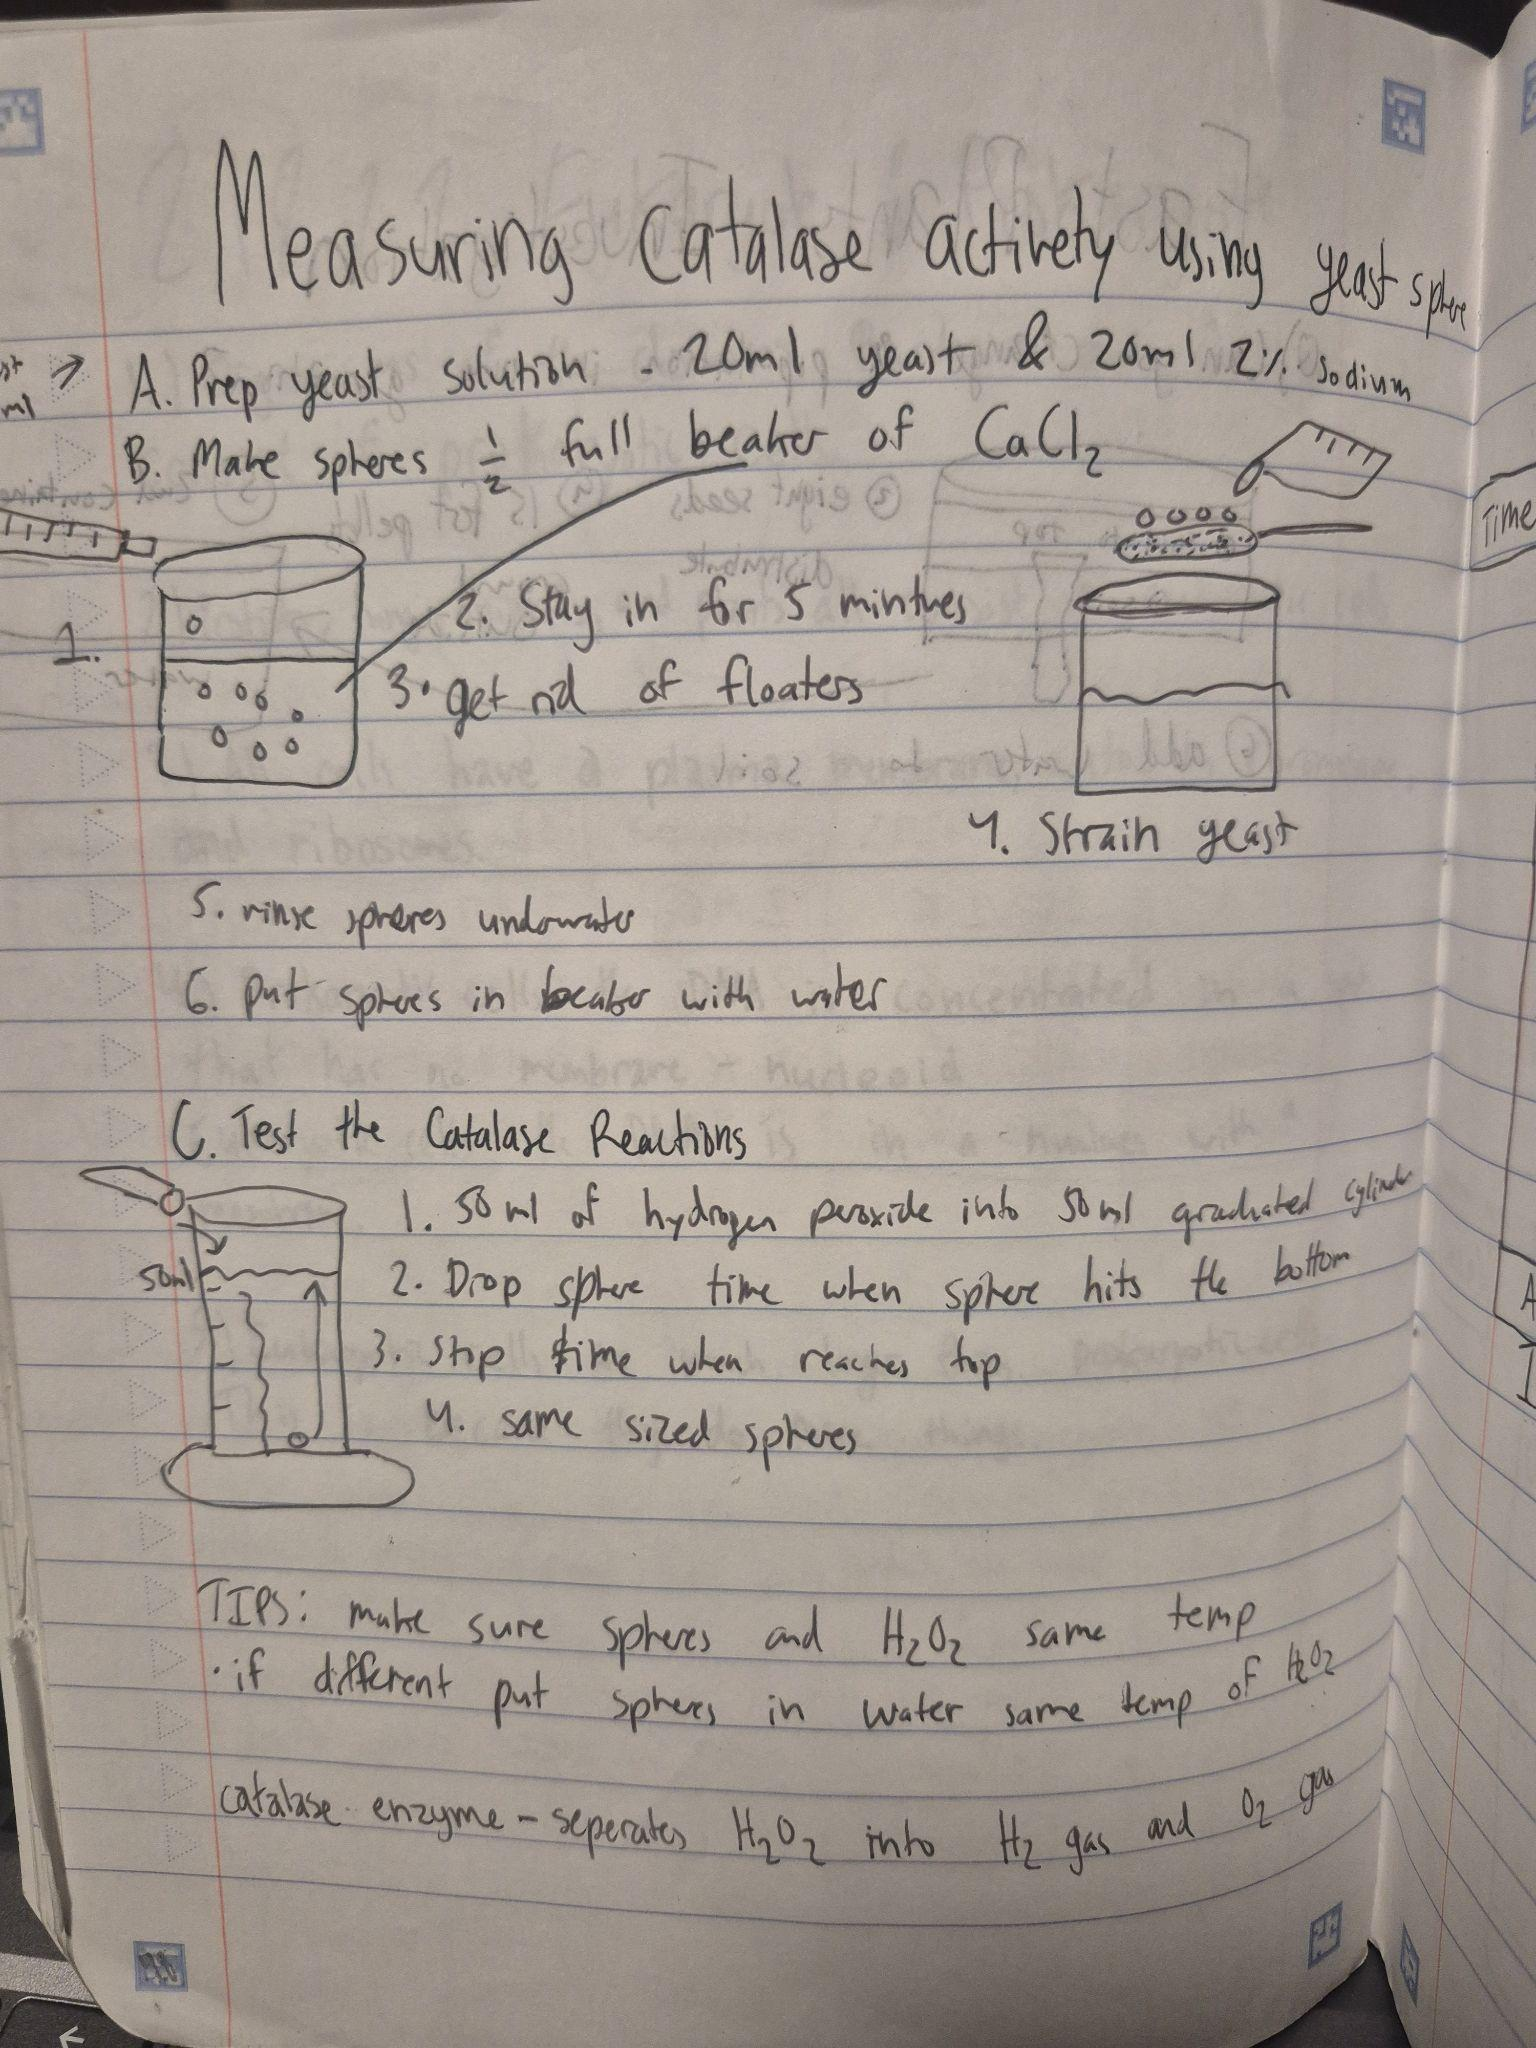 Measuring Catalase activety using yeast sphere
A. Prep yeast solution - 20ml yeast & 20ml 2% sodium
ml
B. Make spheres 1/2 full beaker of CaCl2
Time
1.
2. Stay in for 5 mintues
3. get rid of floaters
4. Strain yeast
5. rinse spheres underwater
6. put spheres in beaker with water
C. Test the Catalase Reactions
1. 50 ml of hydrogen peroxide into 50ml graduated cylinder
50ml
2. Drop sphere time when sphere hits the bottom
3. Stop time when reaches top
4. same sized spheres
TIPS: make sure spheres and H2O2 same temp
· if different put spheres in water same temp of H2O2
catalase enzyme - seperates H2O2 into H2 gas and O2 gas